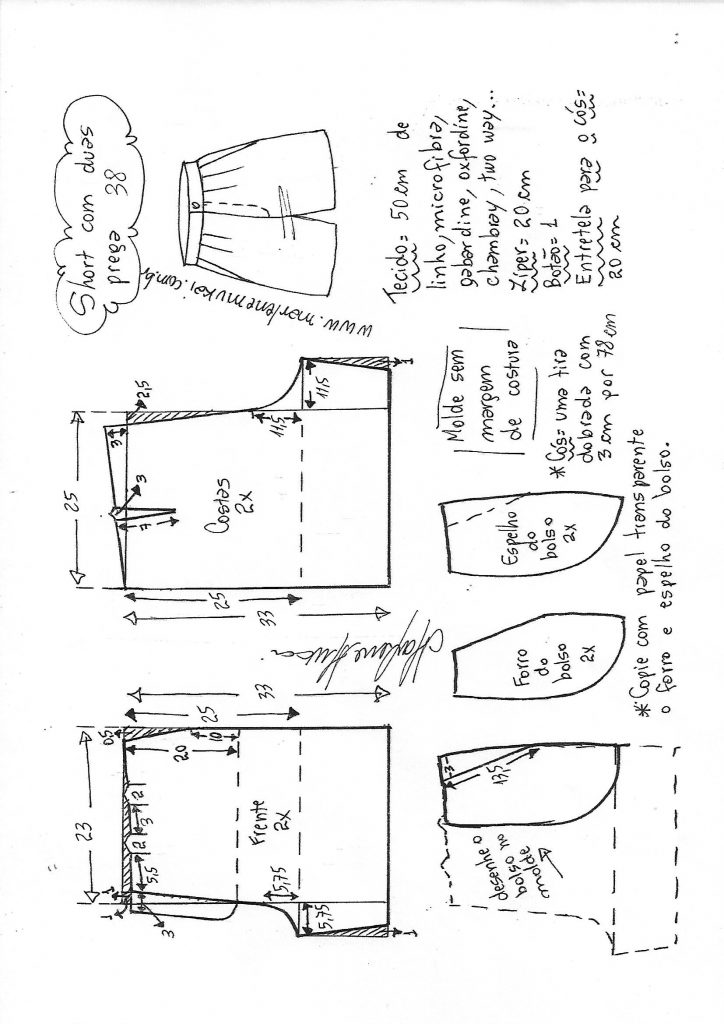 Short com duas
prega 38
www.marlenemukai.com.br
Tecido= 50 cm de
linho, microfibra,
gabardine, oxfordine,
chambray, two way...
Zíper= 20 cm
Botão= 1
Entretela para o cós=
20 cm
25
2,5
3
3
7
Costas
2x
11,5
11,5
1
25
33
Molde sem
margem
de costura
* Cós= uma tira
dobrada com
3 cm por 78 cm
Espelho
do
bolso
2x
Forro
do
bolso
2x
* Copie com papel transparente
o forro e espelho do bolso.
33
25
23
0,5
20
10
2
3
2
5,5
1
1
3
Frente
2x
5,75
5,75
1
3
13,5
desenhe o
bolso no
molde